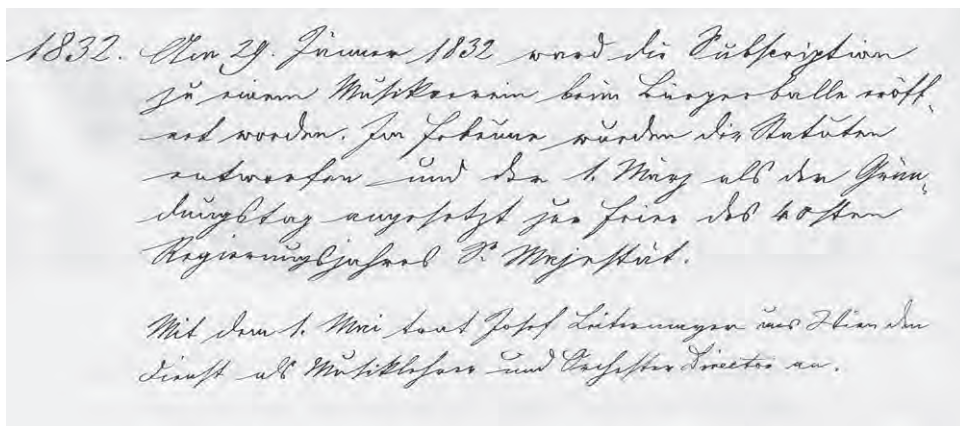 1832. Am 29. Jänner 1832 ward die Subscription
zu einem Musikverein beim Bürgerballe eröff-
net worden. Im Februar wurden die Statuten
entworfen und der 1. März als der Grün-
dungstag angesetzt zur Feier des 40sten
Regierungsjahres Sr. Majestät.
Mit dem 1. Mai trat Josef Leitermayer aus Wien den
Dienst als Musiklehrer und Orchester Director an.